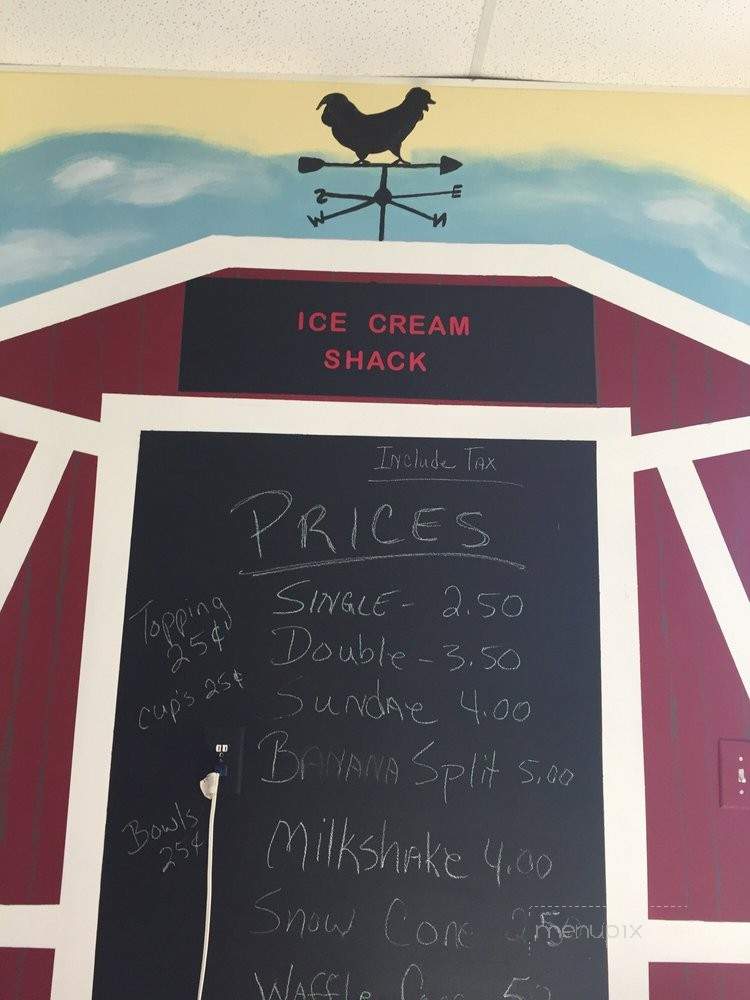 S E
W N
ICE CREAM
SHACK
Include Tax
PRICES
Topping
25¢
SINGLE - 2.50
Double - 3.50
cup's 25¢
SUNDAE 4.00
BANANA Split 5.00
Bowls
25¢
Milkshake 4.00
SNOW Cone 2.50
menupix
WAFFLE